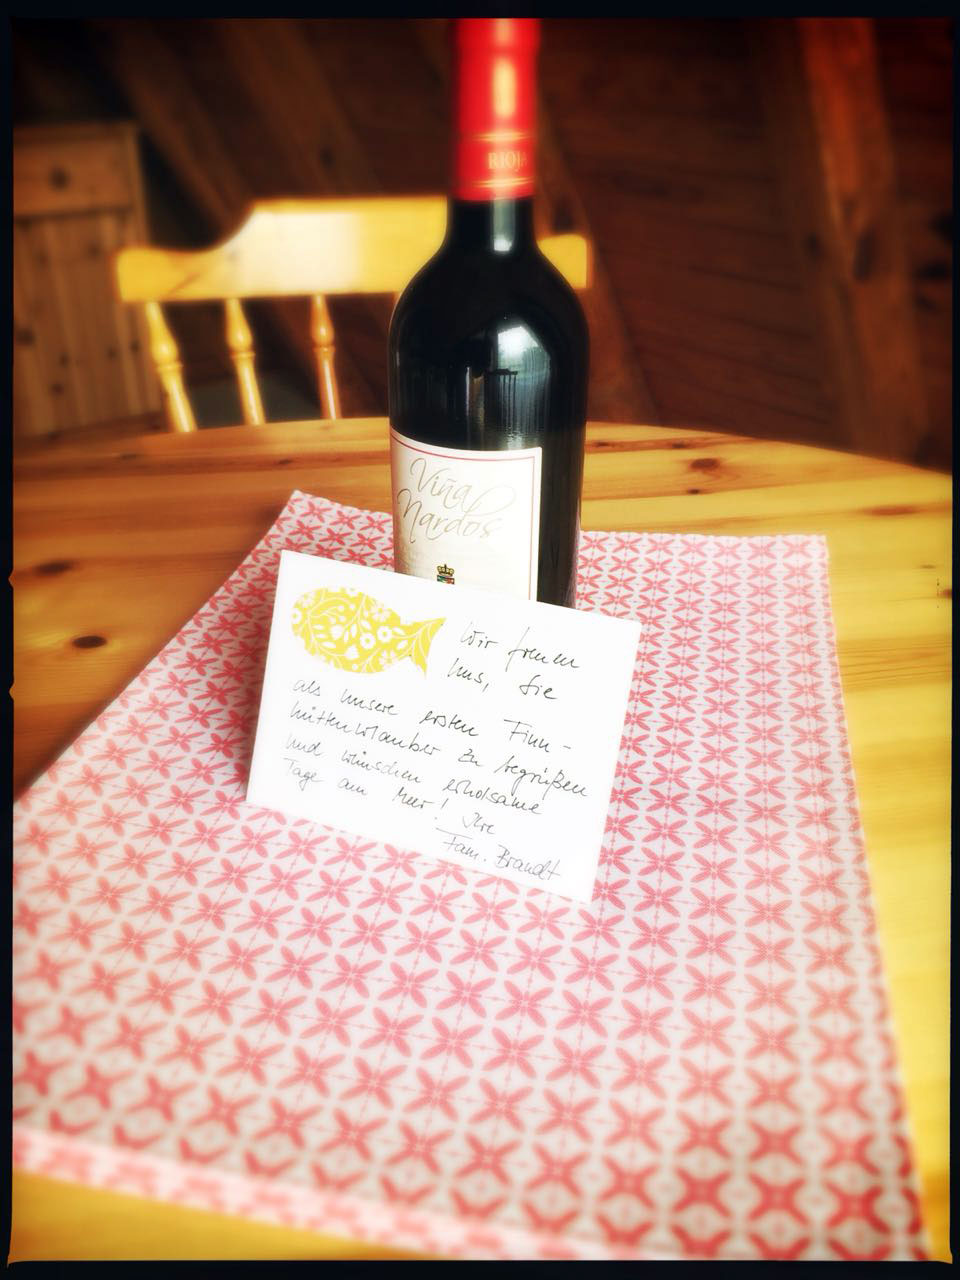 RIOJA
Viña
Nardos
Wir freuen
uns, Sie
als unsere ersten Finn-
hüttenurlauber zu begrüßen
und wünschen erholsame
Tage am Meer!
Ihre
Fam. Brandt